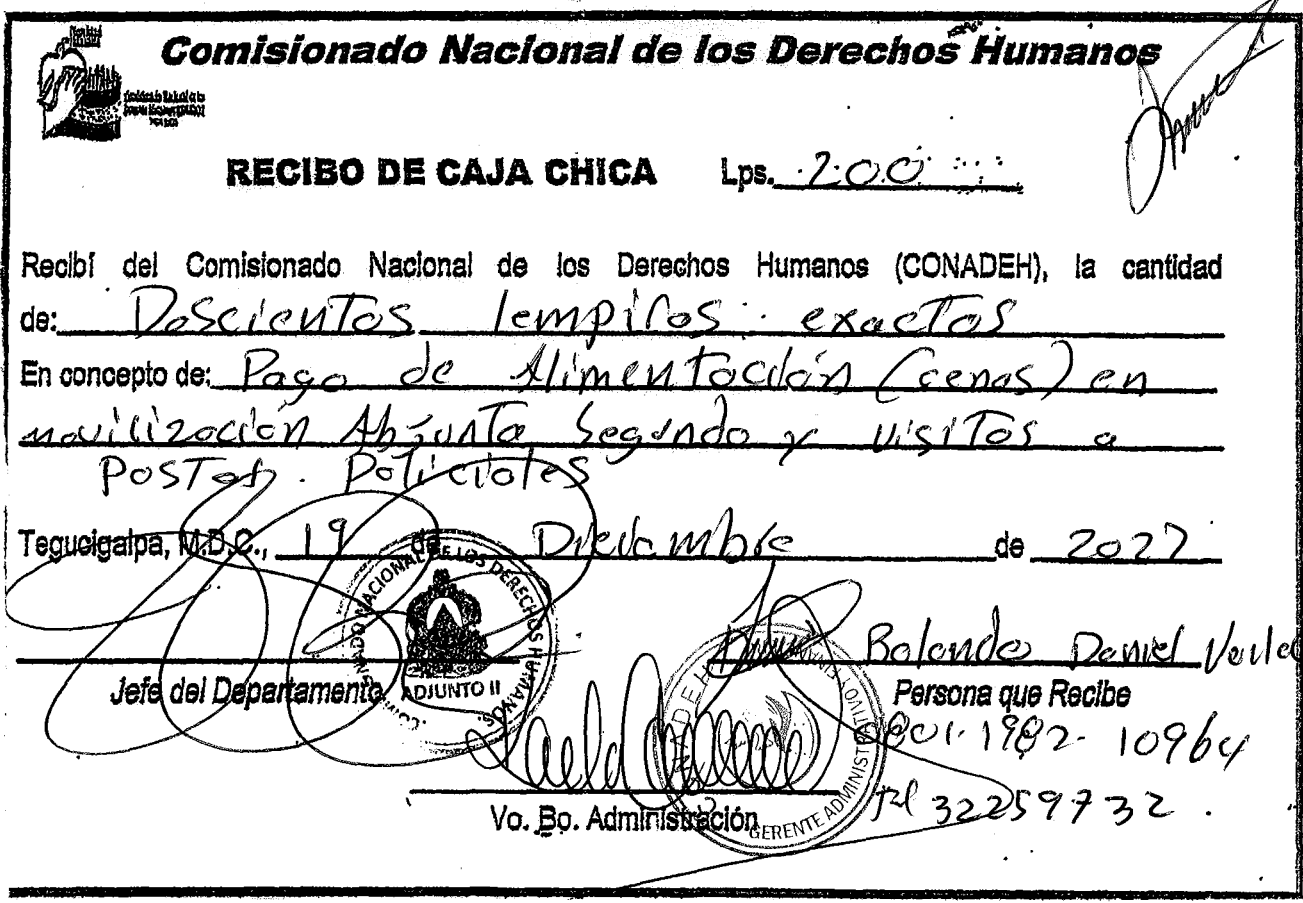 Comisionado Nacional de los Derechos Humanos
RECIBO DE CAJA CHICA Lps. 200
Recibí del Comisionado Nacional de los Derechos Humanos (CONADEH), la cantidad
de: Doscientos lempiras exactos
En concepto de: Pago de Alimentación (cenas) en
movilización Adjunta Segundo y visitas a
Postas Policiales
Tegucigalpa, M.D.C., 19 de Diciembre de 2022
Rolando Daniel
Jefe del Departamento
Persona que Recibe
COMISIONADO NACIONAL DE LOS DERECHOS HUMANOS
ADJUNTO II
801-1982-10964
Tel 32259732.
Vo. Bo. Administración
GERENTE ADMINISTRATIVO